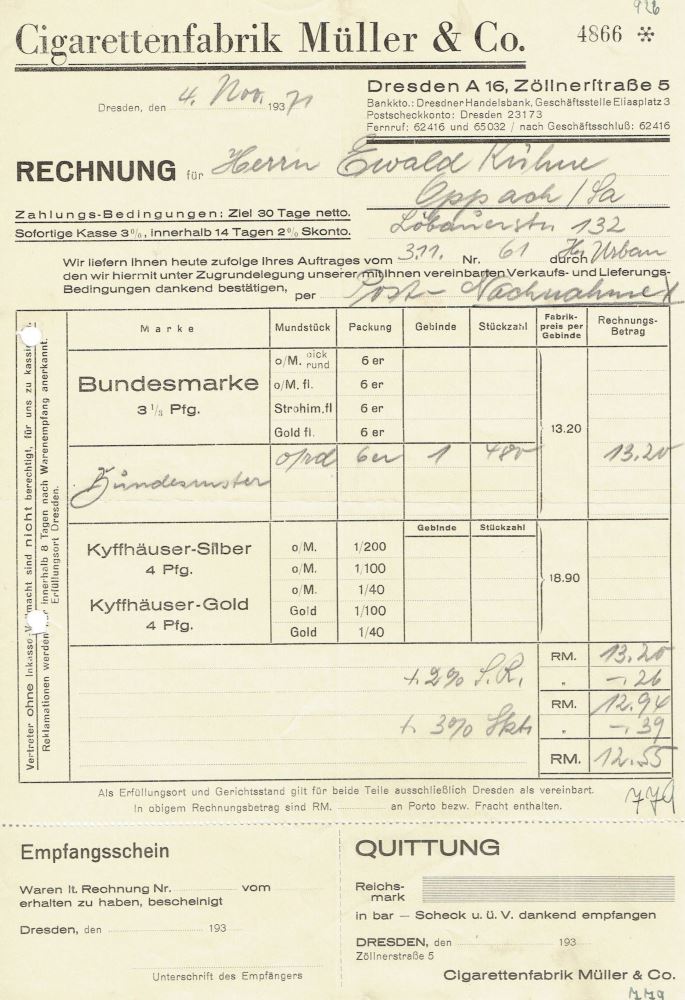 926
Cigarettenfabrik Müller & Co. 4866 *
Dresden, den 4. Nov. 193
Dresden A 16, Zöllnerſtraße 5
Bankkto.: Dresdner Handelsbank, Geschäftsstelle Eliasplatz 3
Postscheckkonto: Dresden 23173
Fernruf: 62416 und 65032 / nach Geschäftsschluß: 62416
RECHNUNG für Herrn Ewald Kühne
Oppach / Sa
Löbauerstr 132
Zahlungs-Bedingungen: Ziel 30 Tage netto.
Sofortige Kasse 3%, innerhalb 14 Tagen 2% Skonto.
Wir liefern Ihnen heute zufolge Ihres Auftrages vom 3.11. Nr. 61 durch Hg Urban
den wir hiermit unter Zugrundelegung unserer mit Ihnen vereinbarten Verkaufs- und Lieferungs-
Bedingungen dankend bestätigen, per Post-Nachnahme
Vertreter ohne Inkasso-Vollmacht sind nicht berechtigt, für uns zu kassieren.
Reklamationen werden nur innerhalb 8 Tagen nach Warenempfang anerkannt.
Erfüllungsort Dresden.
Marke Mundstück Packung Gebinde Stückzahl Fabrik-preis per Gebinde Rechnungs-Betrag
Bundesmarke o/M. dick rund 6 er
o/M. fl. 6 er
3 1/3 Pfg. Strohim.fl 6 er
Gold fl. 6 er
13.20
o/rd 6er 1 480 13.20
Bündesmuster
Gebinde Stückzahl
Kyffhäuser-Silber o/M. 1/200
4 Pfg. o/M. 1/100
o/M. 1/40 18.90
Kyffhäuser-Gold Gold 1/100
4 Pfg. Gold 1/40
RM. 13.20
./. 2% S.R. " -.26
RM. 12.94
./. 3% Skto " -.39
RM. 12.55
Als Erfüllungsort und Gerichtsstand gilt für beide Teile ausschließlich Dresden als vereinbart.
In obigem Rechnungsbetrag sind RM. an Porto bezw. Fracht enthalten.
779
Empfangsschein
Waren lt. Rechnung Nr. vom
erhalten zu haben, bescheinigt
Dresden, den 193
Unterschrift des Empfängers
QUITTUNG
Reichs-
mark
in bar – Scheck u. ü. V. dankend empfangen
DRESDEN, den 193
Zöllnerstraße 5
Cigarettenfabrik Müller & Co.
779